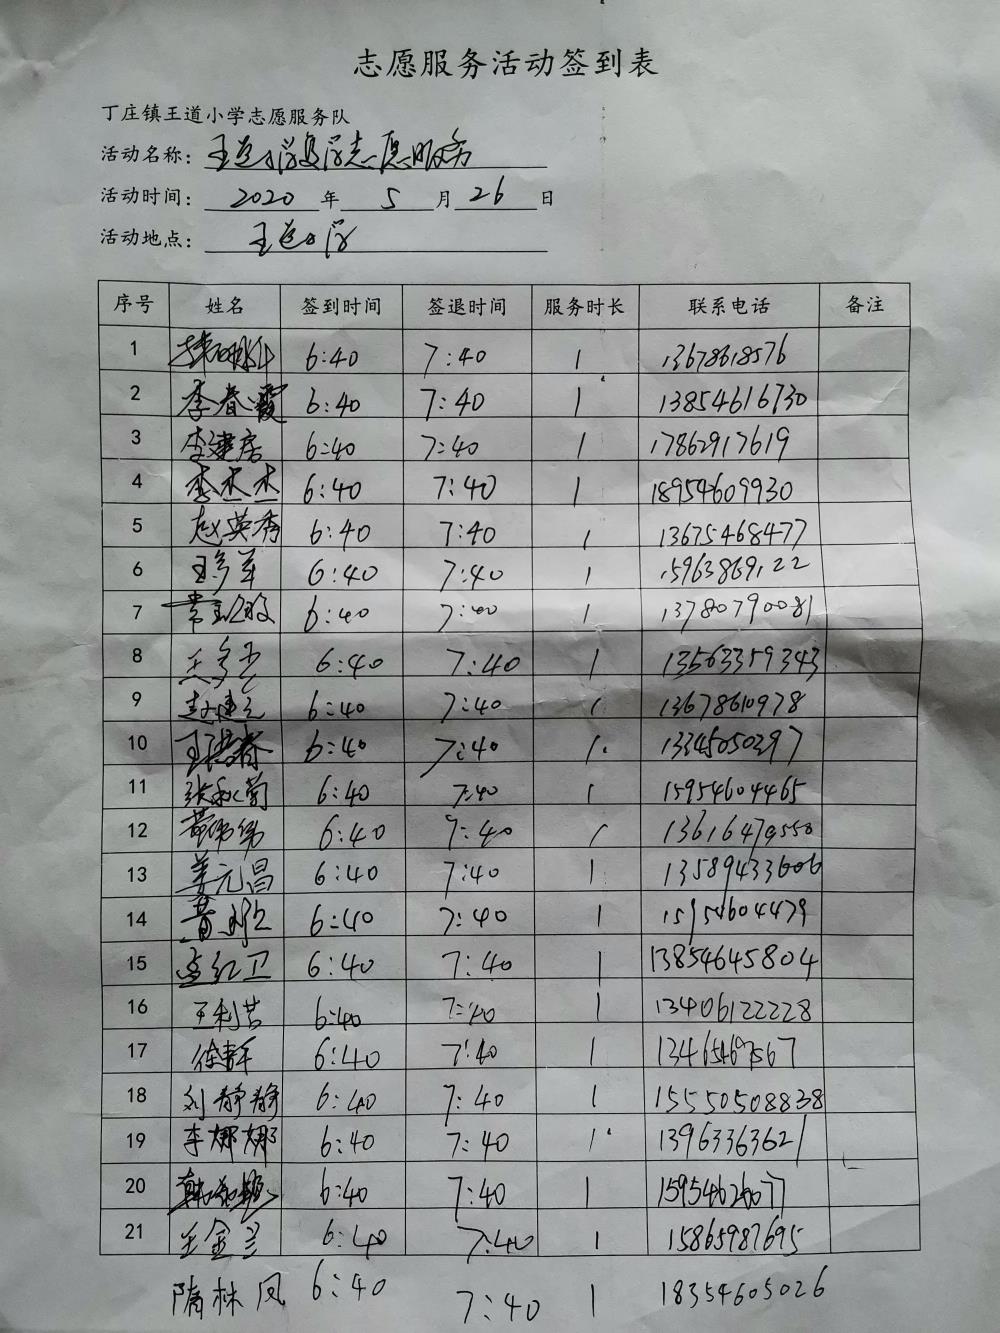 志愿服务活动签到表
丁庄镇王道小学志愿服务队
活动名称：王道小学复学志愿服务
活动时间：2020 年 5 月 26 日
活动地点：王道小学
序号 姓名 签到时间 签退时间 服务时长 联系电话 备注
1 6:40 7:40 1 13678618576
2 李春霞 6:40 7:40 1 13854616730
3 李建房 6:40 7:40 1 17862917619
4 李杰杰 6:40 7:40 1 18954609930
5 赵英秀 6:40 7:40 1 13675468477
6 6:40 7:40 1 15963869122
7 6:40 7:40 1 13780790081
8 6:40 7:40 1 13563359343
9 赵建之 6:40 7:40 1 13678610978
10 王鸿春 6:40 7:40 1 13345050397
11 张秋菊 6:40 7:40 1 15954604465
12 6:40 7:40 1 13616479550
13 姜元昌 6:40 7:40 1 13589433606
14 6:40 7:40 1 15954604479
15 孟红卫 6:40 7:40 1 13854645804
16 王利芸 6:40 7:40 1 13406122228
17 6:40 7:40 1 13465469567
18 刘静静 6:40 7:40 1 15550508838
19 李娜娜 6:40 7:40 1 13963363621
20 6:40 7:40 1 15954626077
21 王金兰 6:40 7:40 1 15865987695
隋林凤 6:40 7:40 1 18354605026